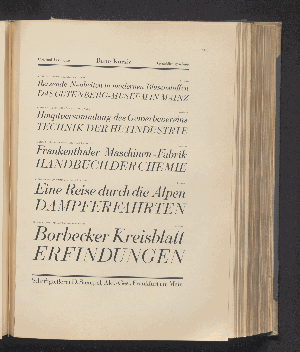 Reizende Neuheiten in modernen Blusenstoffen
DAS GUTENBERG-MUSEUM IN MAINZ
Hauptversammlung des Gewerbevereins
TECHNIK DER HUTINDUSTRIE
Frankenthaler Maschinen-Fabrik
HANDBUCH DER CHEMIE
Eine Reise durch die Alpen
DAMPFERFAHRTEN
Borbecker Kreisblatt
ERFINDUNGEN
Schriftgießerei D. Stempel, Akt.-Ges., Frankfurt am Main